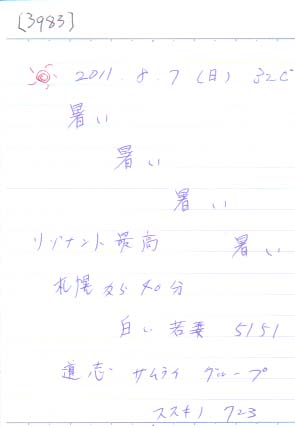 [3983]
2011.8.7(日) 32C
暑い
暑い
暑い
リゾナント最高 暑い
札幌から40分
白い若妻 5151
道志 サムライ グループ
ススキノ 723